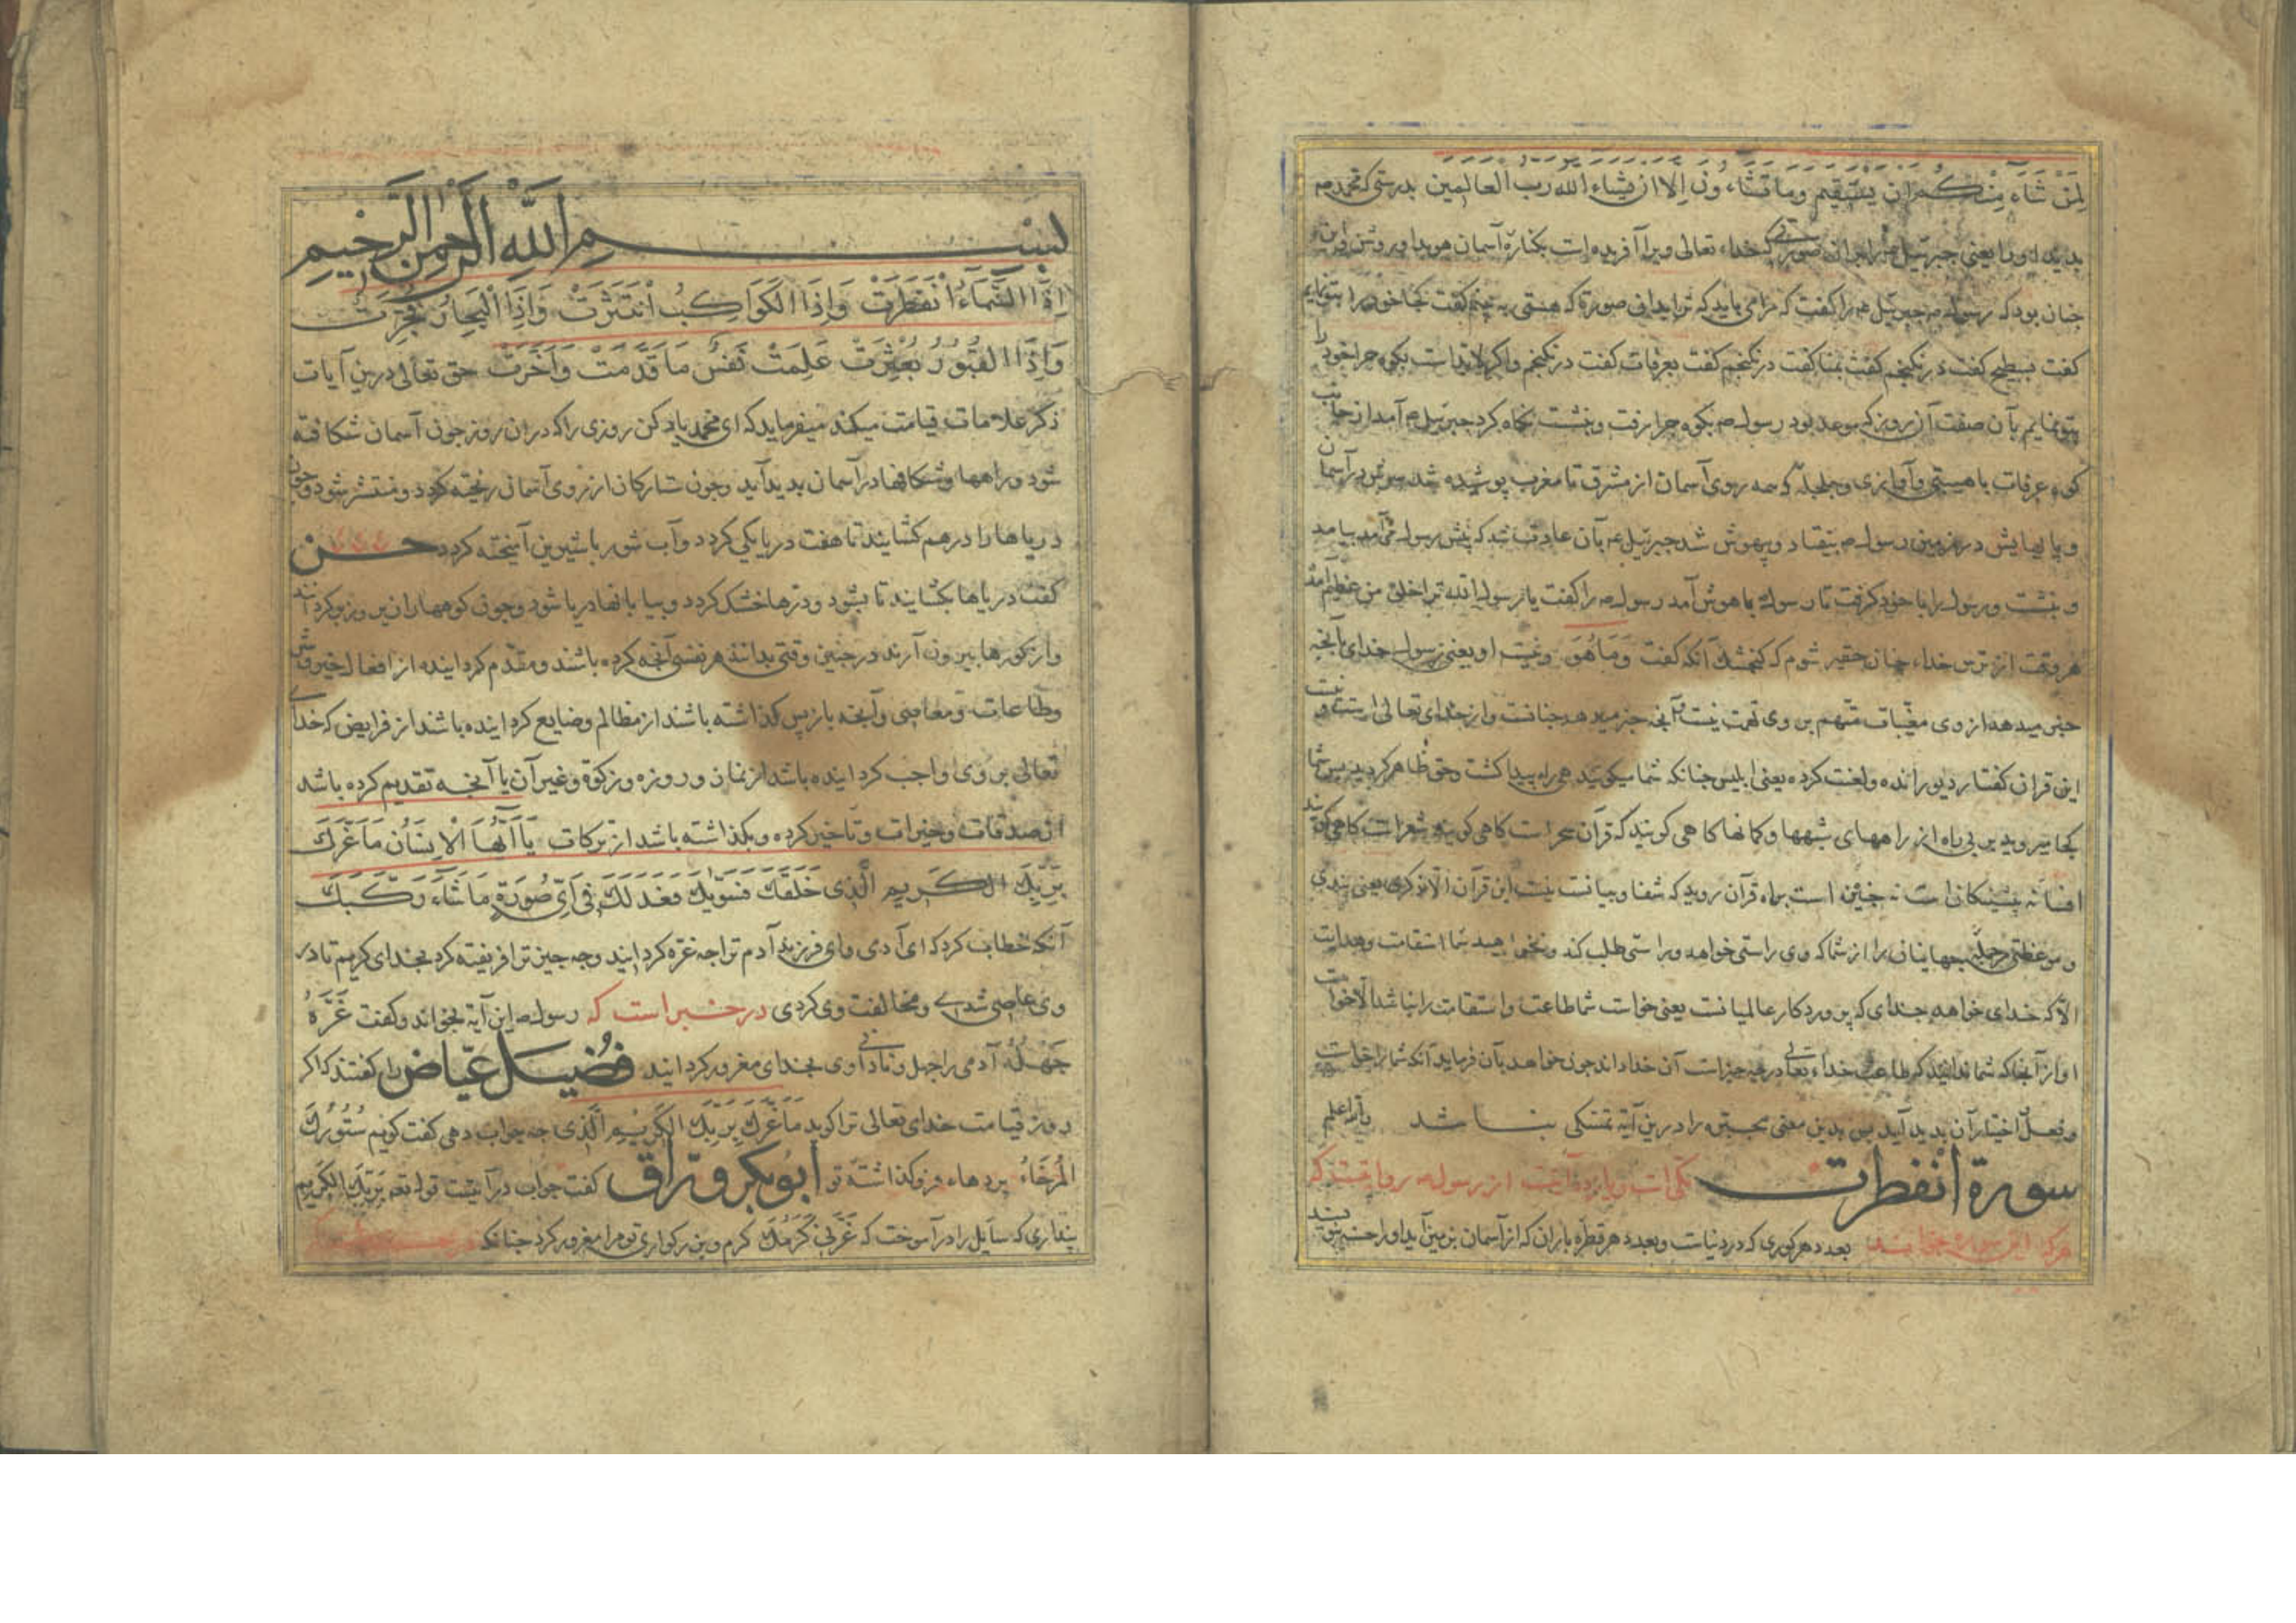 لِمَنْ شَآءَ مِنْكُم ان يستقيم وما تشاءون الا ان يشاء الله رب العالمين بدرستی که محمد صه
بدید او را یعنی جبرئیل را بدان صورتی که خداء تعالی ویرا آفریده است بکنارهٔ آسمان هویدا و روشن و این
چنان بود که رسول صه جبرئیل عم را کفت که مرا می باید که ترا بدانی صورة که هستی به بینم کفت
کفت بسطح کفت در نکنجم کفت بمنا کفت در نکنجم کفت بعرفات کفت در نکنجم و اکر لابد است بکوه حرا خود را
بتو نمایم بآن صفت آن روز که موعد بود رسول صه بکوه حرا رفت و بنشست نکاه کرد جبرئیل عم آمد از جانب
کوه عرفات با هیبتی و آوازی و جلجله که همه روی آسمان از مشرق تا مغرب پوشیده شد سرش در آسمان
و پایهایش در زمین رسول صه بیفتاد و بیهوش شد جبرئیل عم بآن عادت شد که پیش رسول می آمد بیامد
و بنشست و رسول را با خود کرفت تا رسول با هوش آمد رسول صه را کفت یا رسول الله ترا خلق من عظیم آمد
هر وقت از ترس خداء چنان حقیر شوم که کنجشک آنکه کفت وَمَا هُوَ و نیست او یعنی رسول خدای بآنچه
خبر میدهد از وی مغیبات متهم بر وی تهمت نیست و آنچه خبر میدهد چنانست و از خدای تعالی است
این قران کفتار دیو رانده و لعنت کرده یعنی ابلیس چنانکه شما میکویید همی راه پیدا کشت و حق ظاهر کردید پس شما
کجا میروید بر بی راه از راههای شبهها و کمانها کاهی کویند که قرآن سحر است کاهی کویند شعر است کاهی کویند
افسانهٔ پیشینکان است نه چنین است براه قرآن روید که شفا و بیانست نیست این قرآن الا ذکری یعنی پندی
و موعظتی جمله جهانیان را از شما که وی راستی خواهد و راستی طلب کند و نخواهید شما استقامت و هدایت
الا که خدای خواهد خدای که پروردکار عالمیانست یعنی خواست شما طاعت و استقامت را نباشد الا خواست
او از آنجا که شما ندانید که طاعت خداء تعالی در چه چیزست آن خدا داند چون خواهد بآن فرماید آنکه شما را خواست
و فعل اختیار آن بدید آید پس بدین معنی مجبّره را درین آیة تمسکی نباشد والله اعلم
سورة انفطرت مکی است و یازده آیت از رسول صه روایتست که
هر که این سوره بخواند بعدد هر کوری که در دنیاست و بعدد هر قطره باران که از آسمان بزمین آید او را حسنه بنویسند
بسم الله الرحمن الرحيم
اِذَا السَّمَآءُ انْفَطَرَتْ وَاِذَا الكَوَاكِبُ انْتَثَرَتْ وَاِذَا الْبِحَارُ فُجِّرَتْ
وَاِذَا القُبُورُ بُعْثِرَتْ عَلِمَتْ نَفْسٌ مَا قَدَّمَتْ وَاَخَّرَتْ حق تعالی درین آیات
ذکر علامات قیامت میکند میفرماید که ای محمد یاد کن روزی را که دران روز چون آسمان شکافته
شود و راهها و شکافها در آسمان بدید آید و چون ستارکان از روی آسمان ریخته کردد و منتشر شود و چون
دریاها را درهم کشایند تا هفت دریا یکی کردد و آب شور با شیرین آمیخته کردد حسن
کفت دریاها بکشایند تا بشود و ترها خشک کردد و بیابانها دریا شود و چون کورها زیر و زبر کردانند
و از کورها بیرون آرند در چنین وقتی بداند هر نفسی آنچه کرده باشند و مقدّم کردانیده از افعال خیر و شر
و طاعات و معاصی و آنچه باز پس کذاشته باشند از مظالم و ضایع کردانیده باشند از فرایض که خدای
تعالی بر وی واجب کردانیده باشد از نماز و روزه و زکوة و غیر آن یا آنچه تقدیم کرده باشد
از صدقات و خیرات و تاخیر کرده و بکذاشته باشد از برکات يَا اَيُّهَا الْاِنسَانُ مَا غَرَّكَ
بِرَبِّكَ الكَرِيمِ الَّذِى خَلَقَكَ فَسَوّٰيكَ فَعَدَلَكَ فى اَىِّ صُورَةٍ مَا شَآءَ رَكَّبَكَ
آنکه خطاب کرد که ای آدمی و ای فرزند آدم ترا چه غره کردانید و چه چیز ترا فریفته کرد بخدای کریم تا در
وی عاصی شدی و مخالفت وی کردی در خبر است که رسول صه این آیة بخواند و کفت غَرَّهُ
جَهْلُهُ آدمی را جهل و نادانی وی بخدای مغرور کردانید فُضَیل عیّاض را کفتند که اکر
روز قیامت خدای تعالی ترا کوید مَا غَرَّكَ بِرَبِّكَ الكَرِيمِ الَّذِى چه جواب دهی کفت کویم سُتُورُكَ
المُرْخَاةُ پردهاء فرو کذاشتهٔ تو ابو بکر ورّاق کفت جواب در آیتست قوله تعه بِرَبِّكَ الكَرِيم
پنداری که سایل را در آموخت که غَرَّنِى كَرَمُكَ کرم و بزرکواری تو مرا مغرور کرد چنانکه